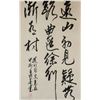 遠山初見疑無
路曲徑徐行
漸有村